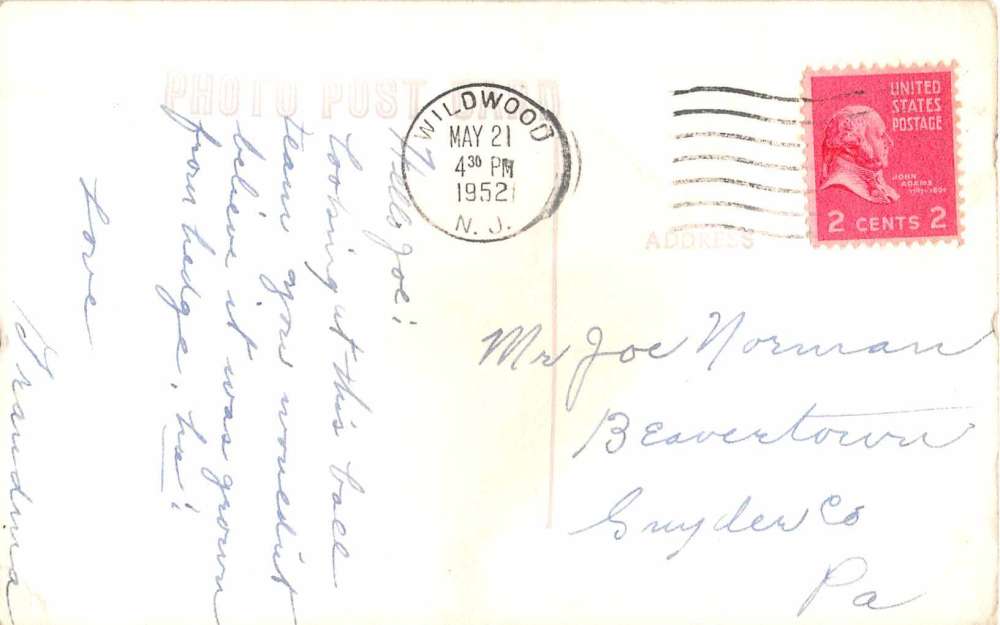 PHOTO POST CARD
Hello Joe!
Looking at this ball
team you wouldn't
believe it was grown
from hedge, ha!
Love
Grandma
WILDWOOD
MAY 21
4 30 PM
1952
N. J.
UNITED
STATES
POSTAGE
JOHN
ADAMS
1797-1801
2 CENTS 2
ADDRESS
Mr Joe Norman
Beavertown
Snyder Co
Pa